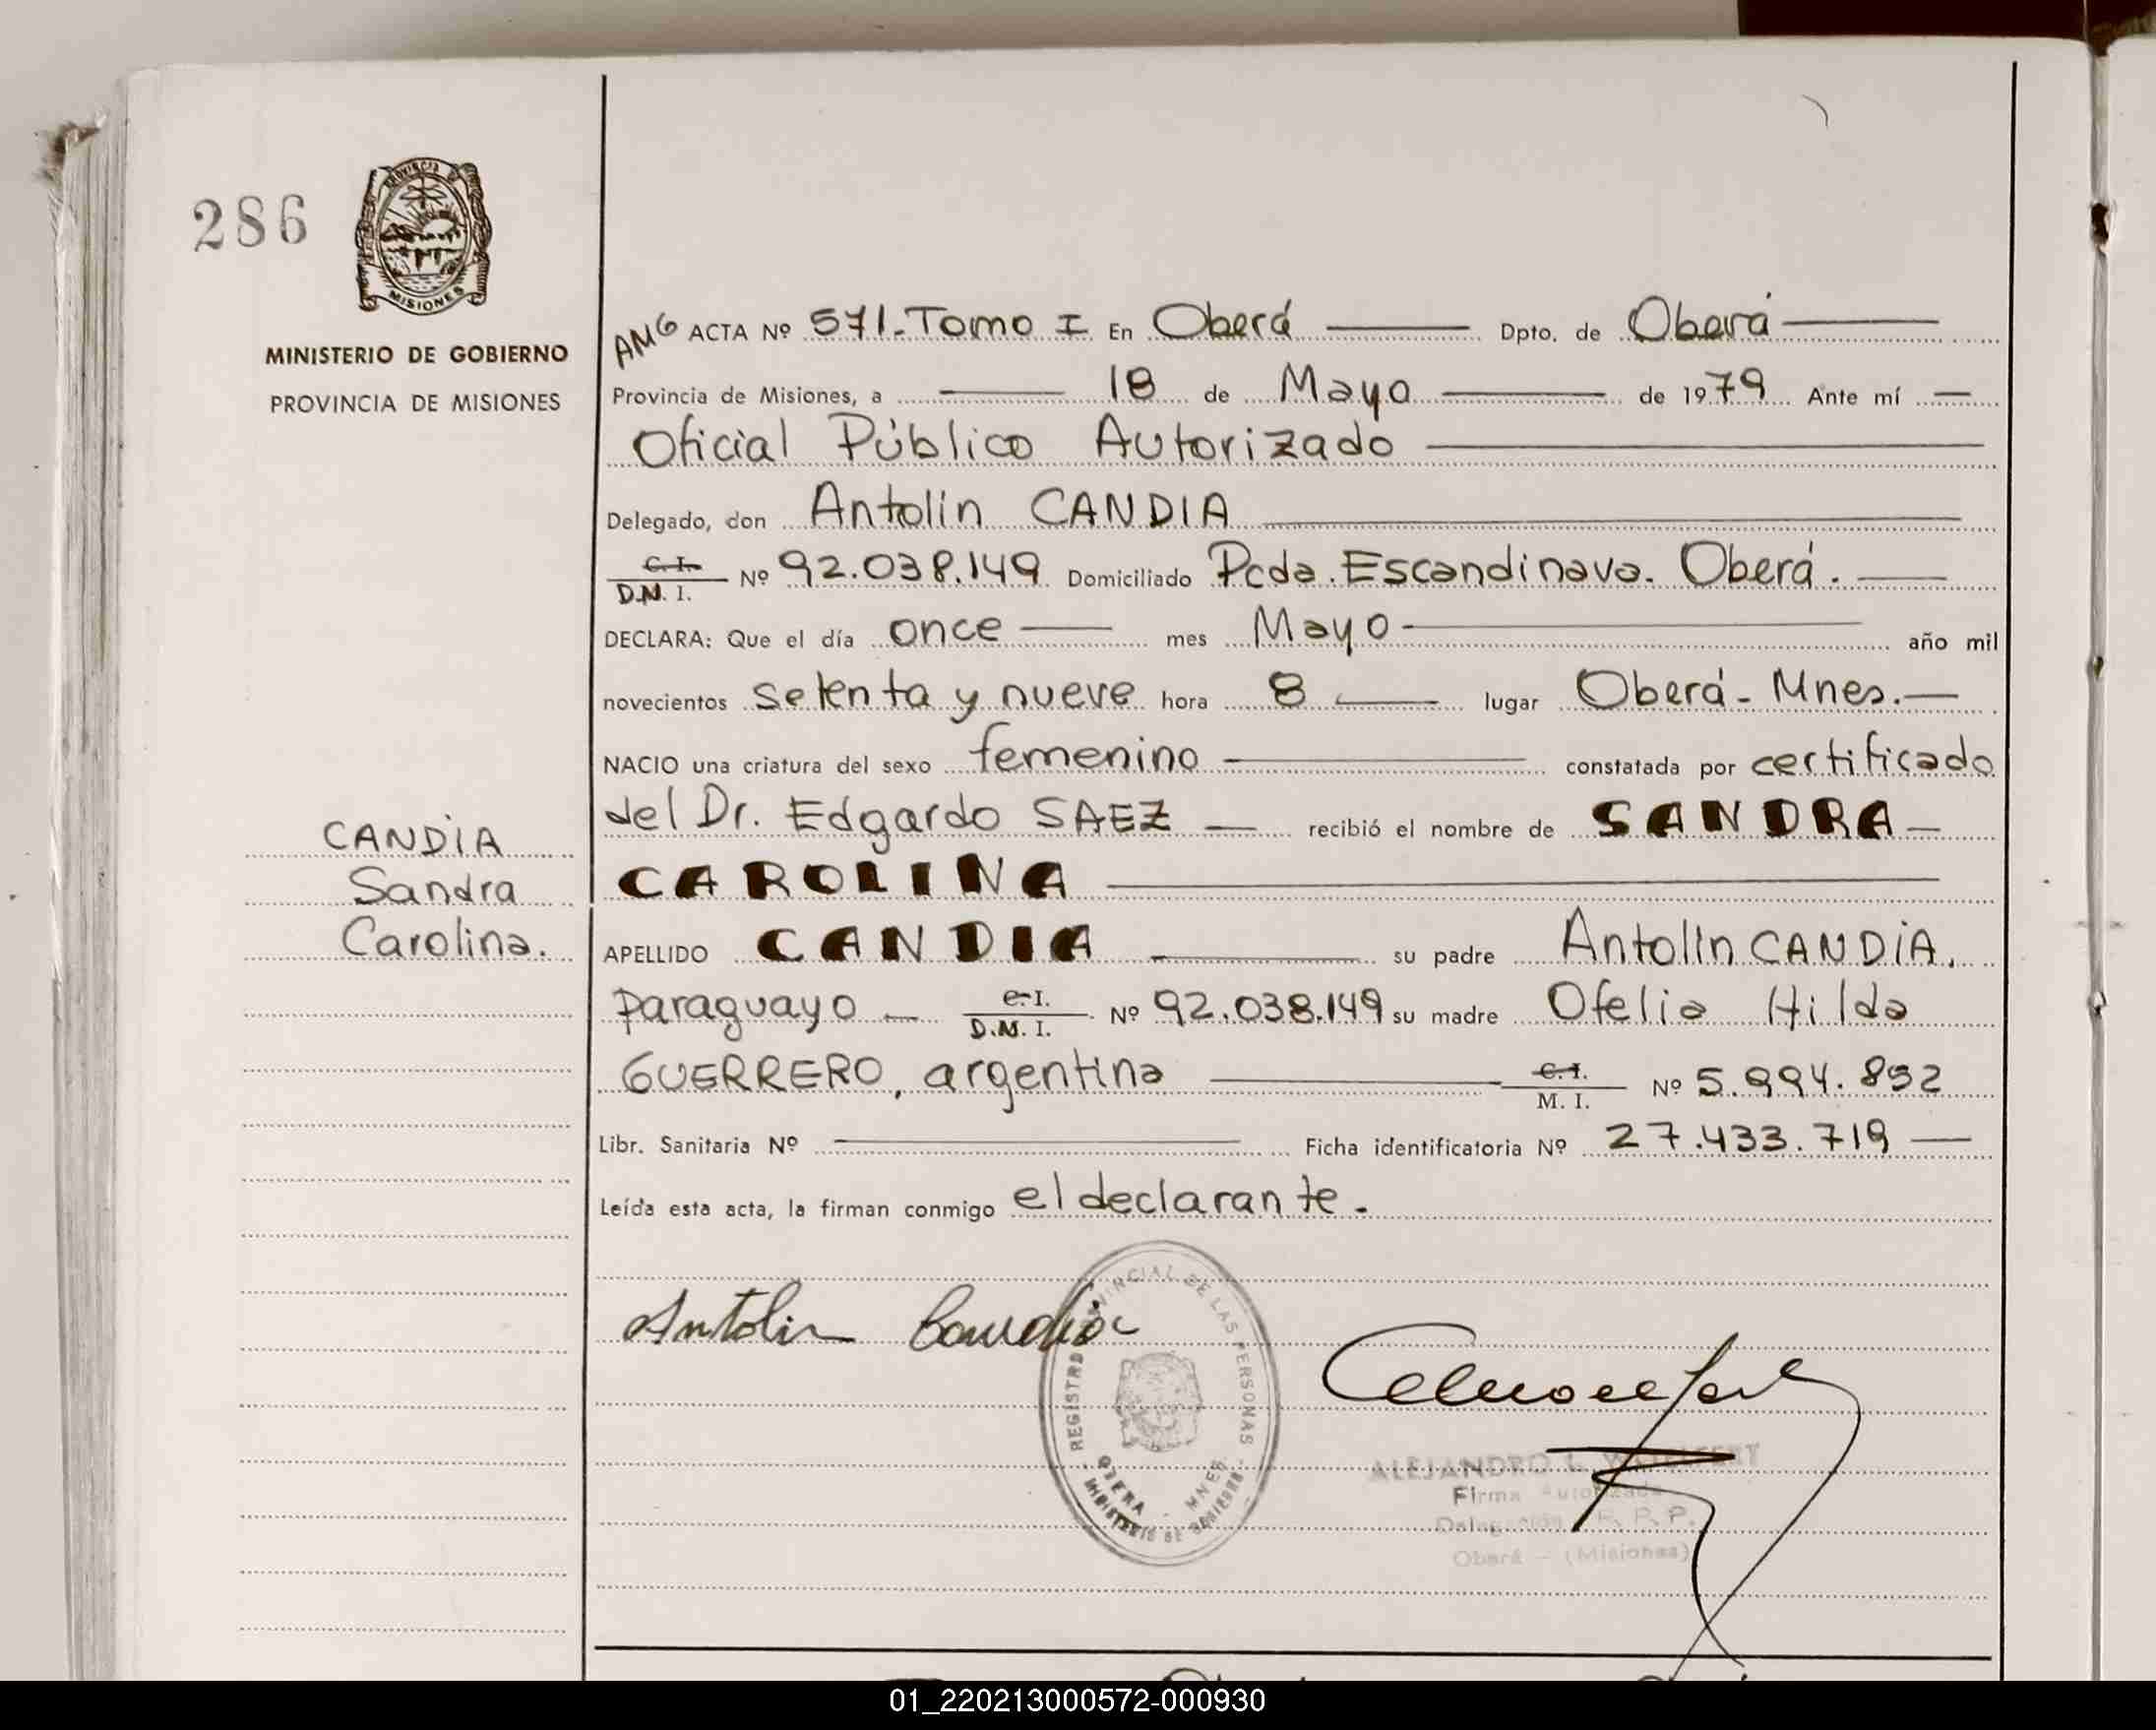 286
PROVINCIA DE
MISIONES
MINISTERIO DE GOBIERNO
PROVINCIA DE MISIONES
CANDIA
Sandra
Carolina.
AMG ACTA Nº 571-Tomo I En Oberá Dpto. de Oberá
Provincia de Misiones, a 18 de Mayo de 1979 Ante mí
Oficial Público Autorizado
Delegado, don Antolín CANDIA
C. I. D.N. I. Nº 92.038.149 Domiciliado Pcda. Escandinava. Oberá.
DECLARA: Que el día once mes Mayo año mil
novecientos setenta y nueve hora 8 lugar Oberá - Mnes.
NACIO una criatura del sexo femenino constatada por certificado
del Dr. Edgardo SAEZ recibió el nombre de SANDRA
CAROLINA
APELLIDO CANDIA su padre Antolín CANDIA,
paraguayo C. I. D.N. I. Nº 92.038.149 su madre Ofelia Hilda
GUERRERO, argentina C. I. M. I. Nº 5.994.892
Libr. Sanitaria Nº Ficha identificatoria Nº 27.433.719
Leída esta acta, la firman conmigo el declarante.
Antolin Candia
REGISTRO PROVINCIAL DE LAS PERSONAS
OBERA - MNES.
MINISTERIO DE GOBIERNO
ALEJANDRO
Firma Autorizada
Delegación R. P. P.
Oberá - (Misiones)
01_220213000572-000930